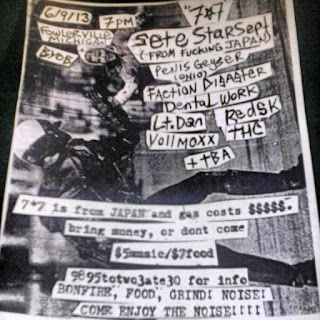 6/9/13 7PM
FOWLERVILLE
MICHIGAN
BYOB
"7★7"
SETE STAR SEPT
(FROM FUCKING JAPAN)
PENIS GEYSER
(OHIO)
FACTION DISASTER
DENTAL WORK
LT. DAN
REDSK
VOLLMOXX
THC
++TBA
7*7 is from JAPAN and gas costs $$$$$.
bring money, or dont come
$5music/$7food
9895totwo3ate30 for info
BONFIRE, FOOD, GRIND! NOISE!
COME ENJOY THE NOISE!!!!